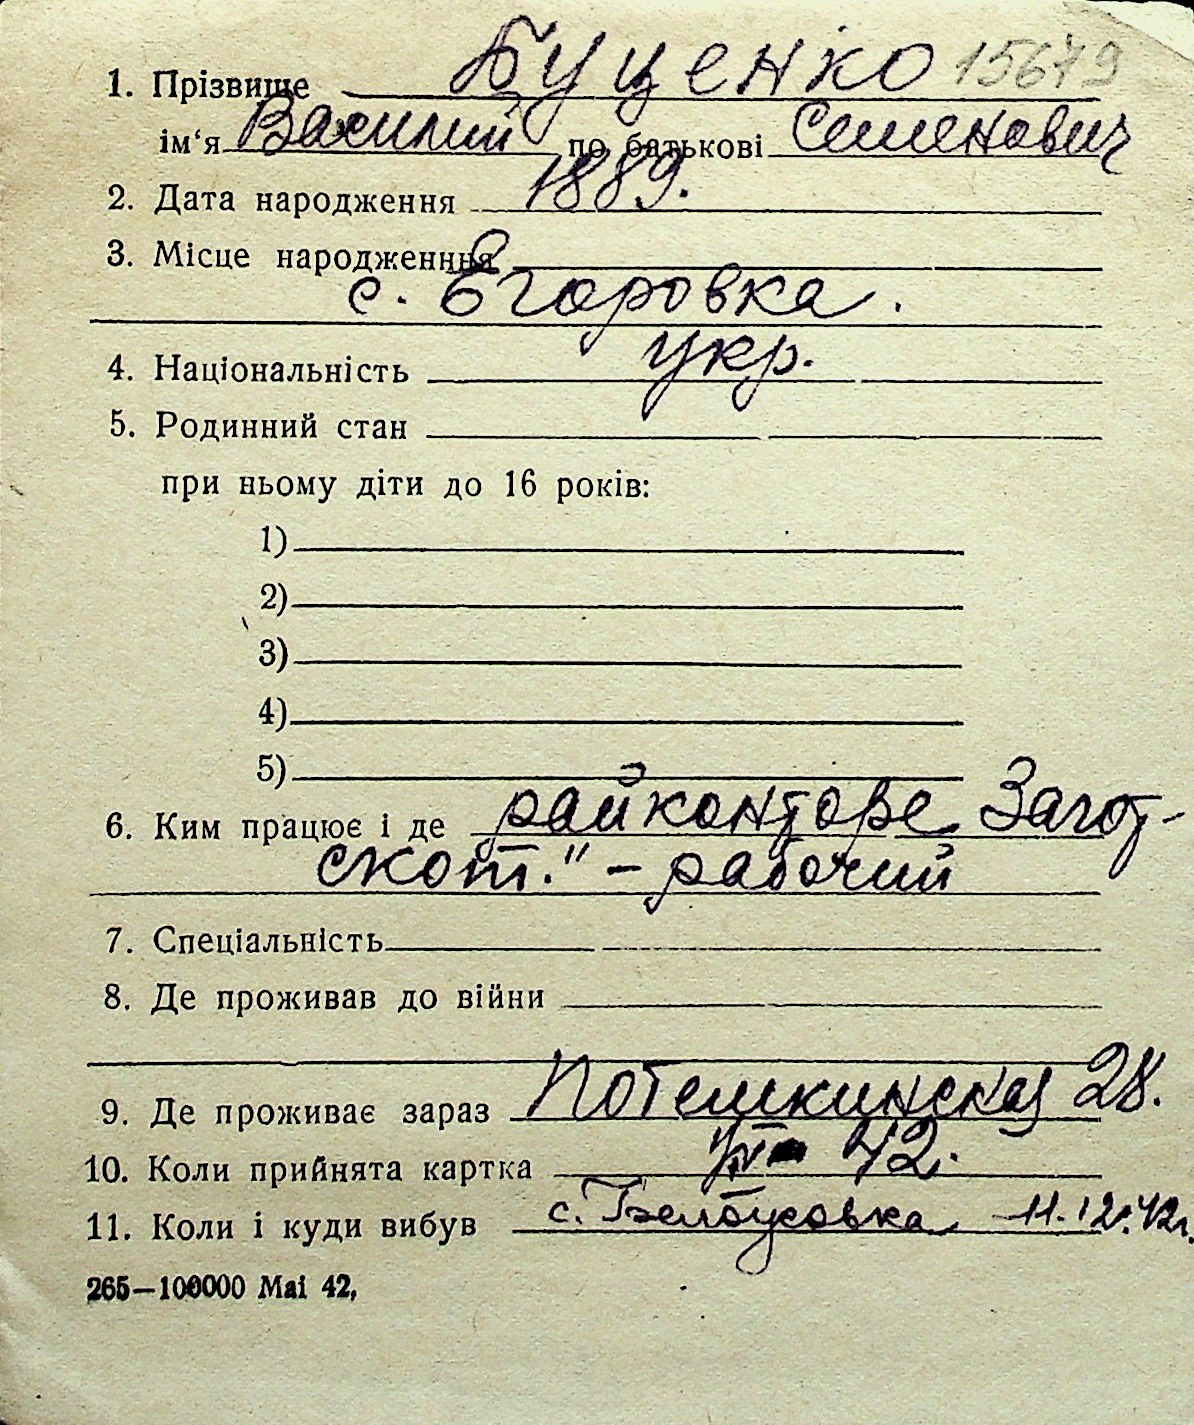 1. Прізвище Буценко 15679
ім‘я Василий по батькові Семенович
2. Дата народження 1889.
3. Місце народженння
с. Егоровка.
4. Національність укр.
5. Родинний стан
при ньому діти до 16 років:
1)
2)
3)
4)
5)
6. Ким працює і де райконторе Загот-
скот." – рабочий
7. Спеціальність
8. Де проживав до війни
9. Де проживає зараз Потемкинская 28.
10. Коли прийнята картка 42.
11. Коли і куди вибув с. Белоусовка 11.12.42г.
265—100000 Маі 42,